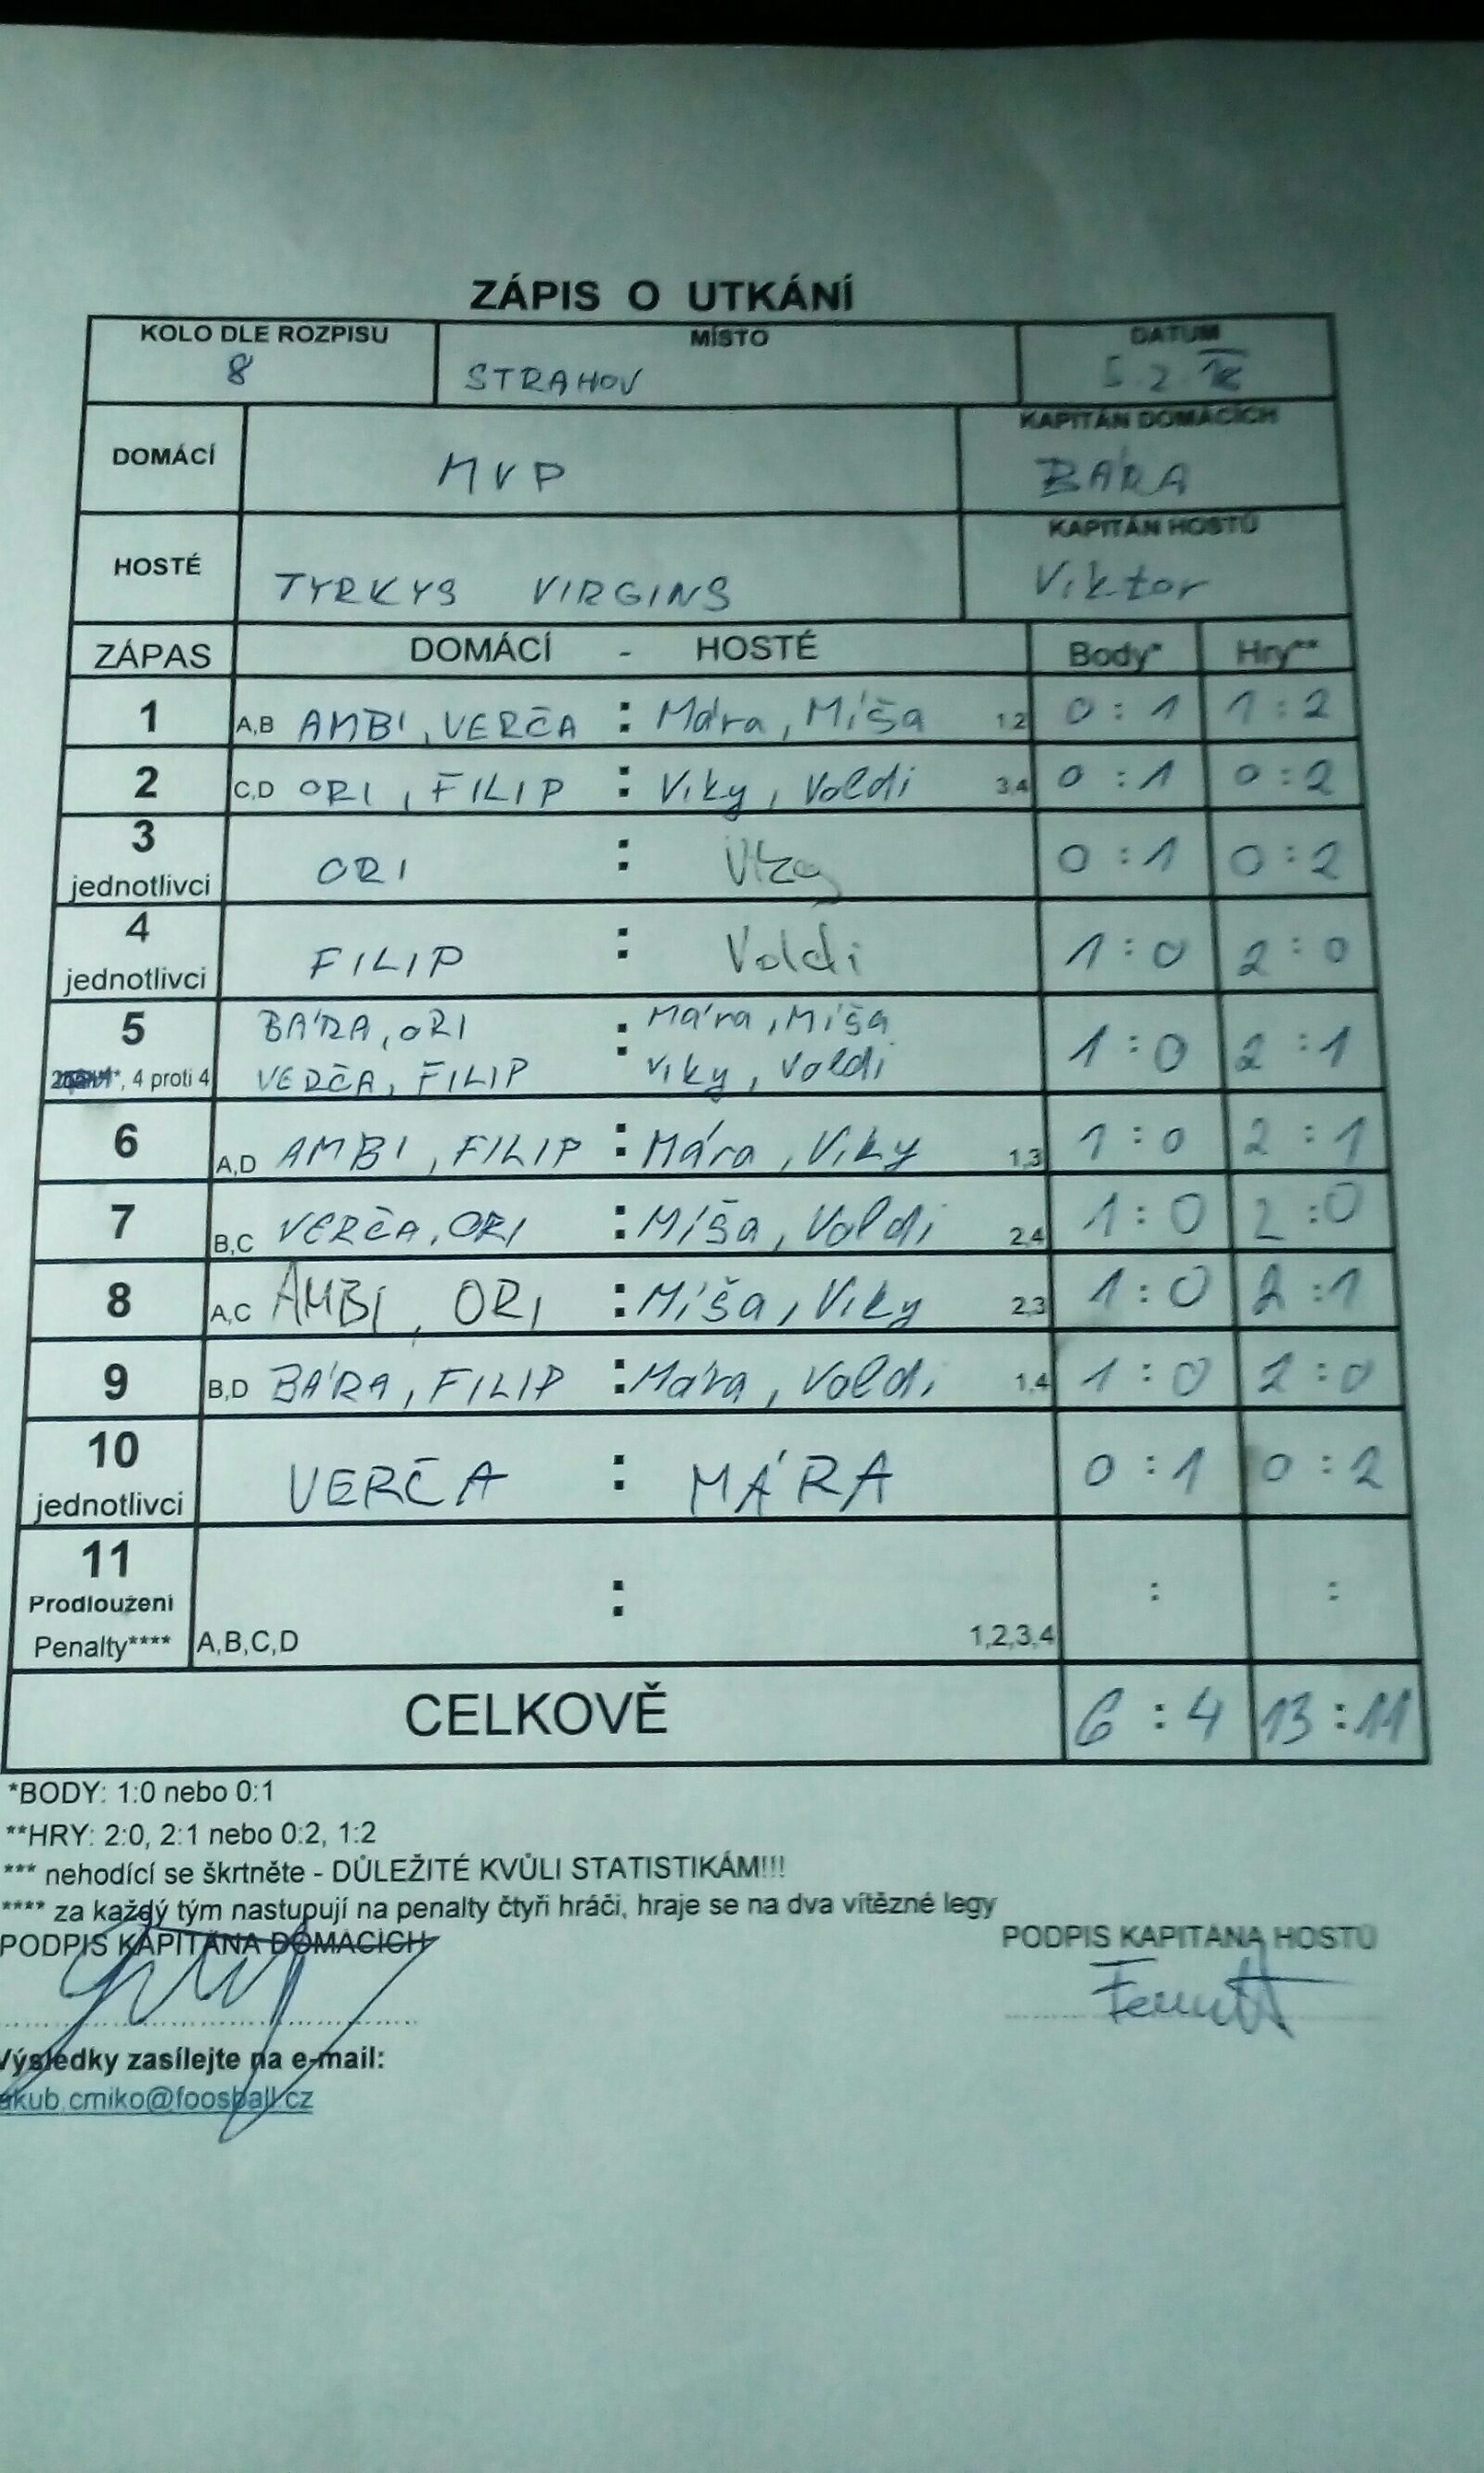 ZÁPIS O UTKÁNÍ
KOLO DLE ROZPISU MÍSTO DATUM
8 STRAHOV 5.2.18
DOMÁCÍ MVP KAPITÁN DOMÁCÍCH BÁRA
HOSTÉ TYRKYS VIRGINS KAPITÁN HOSTŮ Viktor
ZÁPAS DOMÁCÍ - HOSTÉ Body* Hry**
1 A,B AMBI, VERČA : Mára, Míša 1,2 0:1 1:2
2 C,D ORI, FILIP : Viky, Voldi 3,4 0:1 0:2
3 jednotlivci ORI : Viky 0:1 0:2
4 jednotlivci FILIP : Voldi 1:0 2:0
5 BÁRA, ORI : Mára, Míša 1:0 2:1
, 4 proti 4 VERČA, FILIP Viky, Voldi
6 A,D AMBI, FILIP : Mára, Viky 1,3 1:0 2:1
7 B,C VERČA, ORI : Míša, Voldi 2,4 1:0 2:0
8 A,C AMBI, ORI : Míša, Viky 2,3 1:0 2:1
9 B,D BÁRA, FILIP : Mára, Voldi 1,4 1:0 2:0
10 jednotlivci VERČA : MÁRA 0:1 0:2
11
Prodloužení : : :
Penalty**** A,B,C,D 1,2,3,4
CELKOVĚ 6:4 13:11
*BODY: 1:0 nebo 0:1
**HRY: 2:0, 2:1 nebo 0:2, 1:2
*** nehodící se škrtněte - DŮLEŽITÉ KVŮLI STATISTIKÁM!!!
**** za každý tým nastupují na penalty čtyři hráči, hraje se na dva vítězné legy
PODPIS KAPITÁNA DOMÁCÍCH PODPIS KAPITÁNA HOSTŮ
Výsledky zasílejte na e-mail:
akub.cmiko@foosball.cz